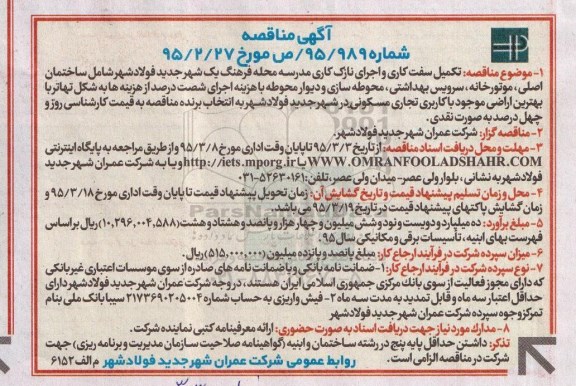 آگهی مناقصه
شماره ۹۵/۹۸۹/ص مورخ ۹۵/۲/۲۷
۱- موضوع مناقصه: تکمیل سفت کاری و اجرای نازک کاری مدرسه محله فرهنگ یک شهر جدید فولادشهر شامل ساختمان
اصلی، موتورخانه، سرویس بهداشتی، محوطه سازی و دیوار محوطه با هزینه اجرای شصت درصد از هزینه ها به شکل تهاتر با
بهترین اراضی موجود با کاربری تجاری مسکونی در شهر جدید فولادشهر به انتخاب برنده مناقصه به قیمت کارشناسی روز و
چهل درصد به صورت نقدی.
۲- مناقصه گزار: شرکت عمران شهر جدید فولادشهر.
۳- مهلت و محل دریافت اسناد مناقصه: از تاریخ ۹۵/۳/۳ تا پایان وقت اداری مورخ ۹۵/۳/۸ و از طریق مراجعه به پایگاه اینترنتی
WWW.OMRANFOOLADSHAHR.COM یا http://iets.mporg.ir و یا به شرکت عمران شهر جدید
فولادشهر به نشانی، بلوار ولی عصر- میدان ولی عصر، تلفن: ۵۲۶۳۰۱۶۱-۰۳۱
۴- محل و زمان تسلیم پیشنهاد قیمت و تاریخ گشایش آن: زمان تحویل پیشنهاد قیمت تا پایان وقت اداری مورخ ۹۵/۳/۱۸ و
زمان گشایش پاکتهای پیشنهاد قیمت در تاریخ ۹۵/۳/۱۹ می باشد.
۵- مبلغ برآورد: ده میلیارد و دویست و نود و شش میلیون و چهار هزار و پانصد و هشتاد و هشت (۱۰,۲۹۶,۰۰۴,۵۸۸) ریال بر اساس
فهرست بهای ابنیه، تأسیسات برقی و مکانیکی سال ۹۵.
۶- میزان سپرده شرکت در فرآیند ارجاع کار: مبلغ پانصد و پانزده میلیون (۵۱۵,۰۰۰,۰۰۰) ریال.
۷- نوع سپرده شرکت در فرآیند ارجاع کار: ۱- ضمانت نامه بانکی و یا ضمانت نامه های صادره از سوی موسسات اعتباری غیر بانکی
که دارای مجوز فعالیت از سوی بانک مرکزی جمهوری اسلامی ایران هستند، در وجه شرکت عمران شهر جدید فولادشهر دارای
حداقل اعتبار سه ماه و قابل تمدید به مدت سه ماه ۲- فیش واریزی به حساب شماره ۲۱۷۳۶۹۰۲۰۵۰۰۴ سیبا بانک ملی بنام
تمرکز وجوه سپرده شرکت عمران شهر جدید فولادشهر
۸- مدارک مورد نیاز جهت دریافت اسناد به صورت حضوری: ارائه معرفینامه کتبی نماینده شرکت.
تذکر: داشتن حداقل پایه پنج در رشته ساختمان و ابنیه (گواهینامه صلاحیت سازمان مدیریت و برنامه ریزی) جهت
شرکت در مناقصه الزامی است.
روابط عمومی شرکت عمران شهر جدید فولادشهر م الف ۶۱۵۲